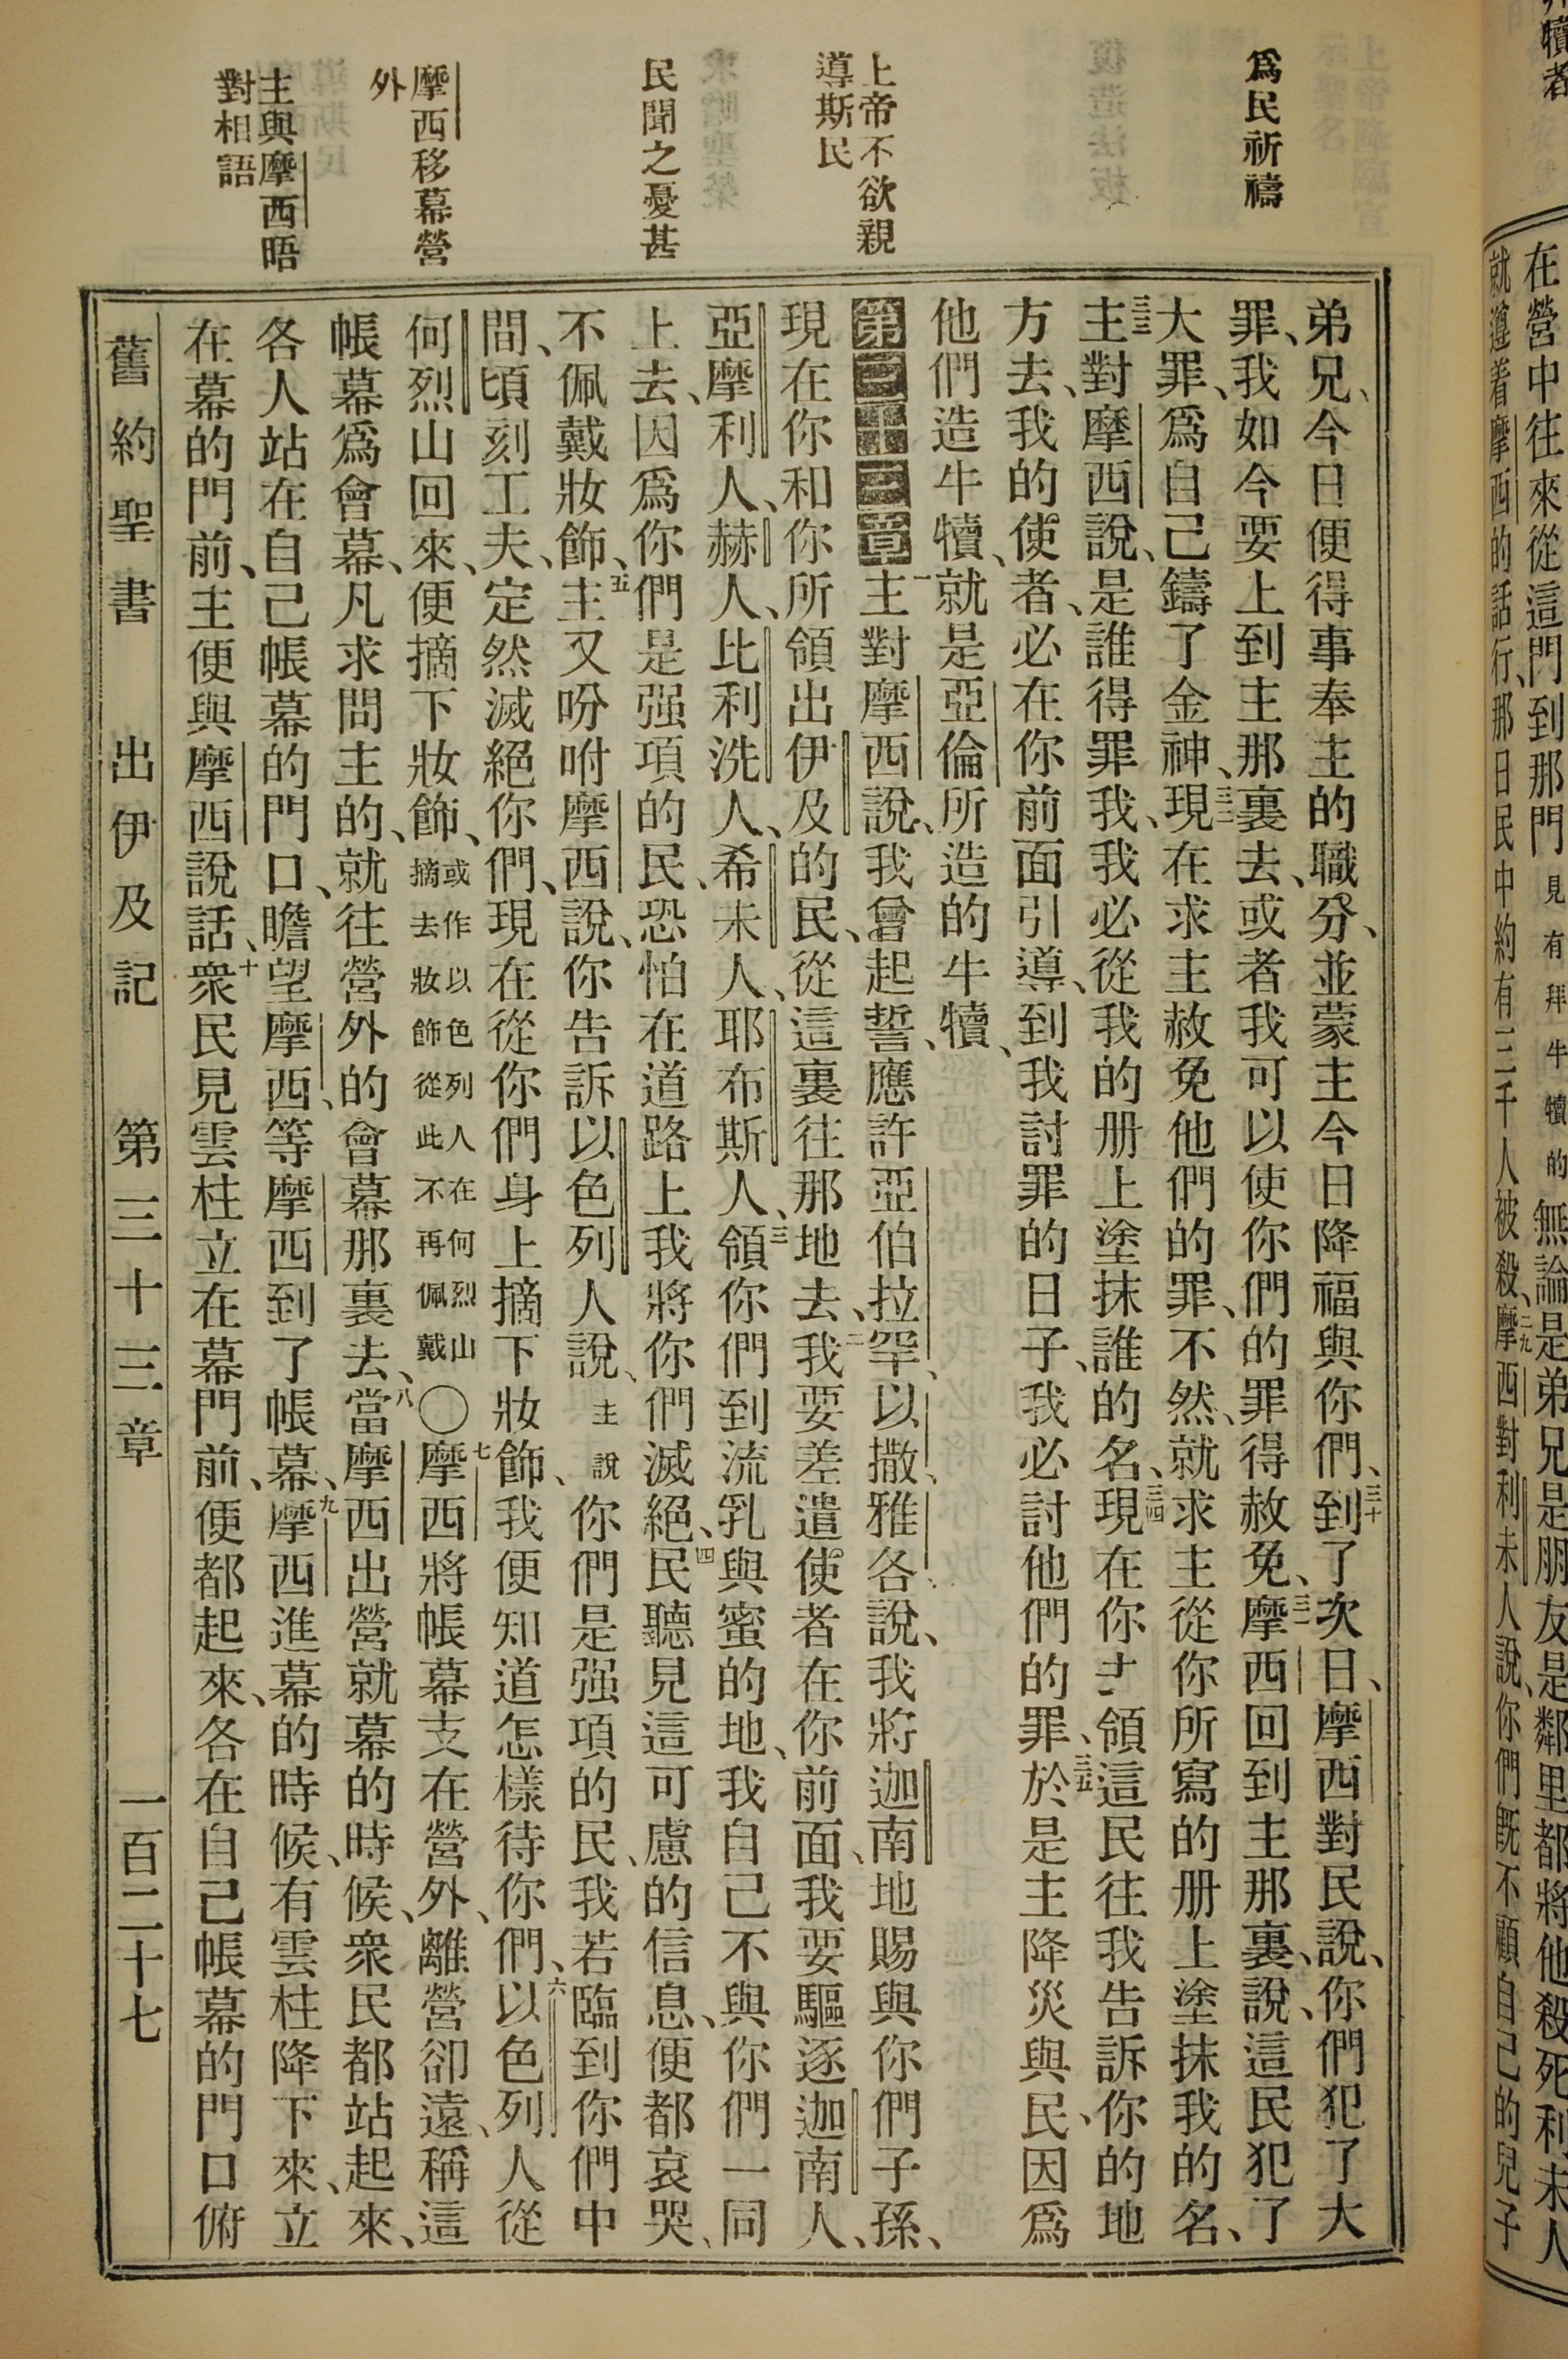 犢者
在營中往來從這門到那門見有拜牛犢的無論是弟兄是朋友是鄰里都將他殺死利未人
就遵着摩西的話行、那日民中約有三千人被殺、二九摩西對利未人說、你們既不顧自己的兒子
爲民祈禱
上帝不欲親
導斯民
民聞之憂甚
摩西移幕營
外
主與摩西晤
對相語
弟兄、今日便得事奉主的職分、並蒙主今日降福與你們、三十到了次日、摩西對民說、你們犯了大
罪、我如今要上到主那裏去、或者我可以使你們的罪得赦免、三一摩西回到主那裏、說、這民犯了
大罪、爲自己鑄了金神、三二現在求主赦免他們的罪、不然、就求主從你所寫的册上塗抹我的名、
三三主對摩西說、是誰得罪我、我必從我的册上塗抹誰的名、三四現在你去領這民往我告訴你的地
方去、我的使者、必在你前面引導、到我討罪的日子、我必討他們的罪、三五於是主降災與民、因爲
他們造牛犢、就是亞倫所造的牛犢、
第三十三章 一主對摩西說、我曾起誓、應許亞伯拉罕、以撒、雅各說、我將迦南地賜與你們子孫、
現在你和你所領出伊及的民、從這裏往那地去、二我要差遣使者在你前面、我要驅逐迦南人、
亞摩利人、赫人、比利洗人、希未人、耶布斯人、三領你們到流乳與蜜的地、我自己不與你們一同
上去、因爲你們是强項的民、恐怕在道路上我將你們滅絕、四民聽見這可慮的信息、便都哀哭、
不佩戴妝飾、五主又吩咐摩西說、你告訴以色列人說、主說你們是强項的民、我若臨到你們中
間、頃刻工夫、定然滅絕你們、現在從你們身上摘下妝飾、我便知道怎樣待你們、六以色列人從
何烈山回來、便摘下妝飾、或作以色列人在何烈山摘去妝飾從此不再佩戴〇七摩西將帳幕支在營外、離營卻遠、稱這
帳幕爲會幕、凡求問主的、就往營外的會幕那裏去、八當摩西出營就幕的時候、衆民都站起來、
各人站在自己帳幕的門口、瞻望摩西、等摩西到了帳幕、九摩西進幕的時候、有雲柱降下來、立
在幕的門前、主便與摩西說話、十衆民見雲柱立在幕門前、便都起來、各在自己帳幕的門口俯
舊約聖書 出伊及記 第三十三章 一百二十七